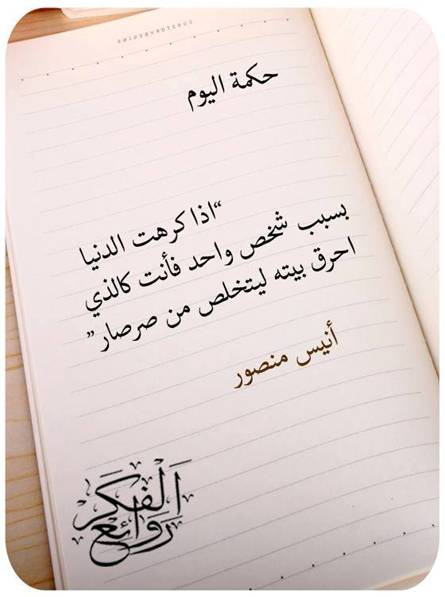 حكمة اليوم
“اذا كرهت الدنيا
بسبب شخص واحد فأنت كالذي
احرق بيته ليتخلص من صرصار”
أنيس منصور
روائع الفكر